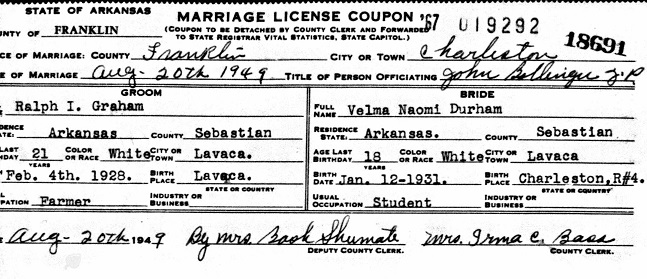 STATE OF ARKANSAS
MARRIAGE LICENSE COUPON '67 019292
NTY OF FRANKLIN (COUPON TO BE DETACHED BY COUNTY CLERK AND FORWARDED TO STATE REGISTRAR VITAL STATISTICS, STATE CAPITOL.) 18691
CE OF MARRIAGE: COUNTY Franklin CITY OR TOWN Charleston
E OF MARRIAGE Aug- 20th 1949 TITLE OF PERSON OFFICIATING John Bollinger J.P
GROOM BRIDE
Ralph I. Graham FULL NAME Velma Naomi Durham
DENCE ATE: Arkansas COUNTY Sebastian RESIDENCE STATE: Arkansas. COUNTY Sebastian
LAST HDAY 21 YEARS COLOR OR RACE White CITY OR TOWN Lavaca. AGE LAST BIRTHDAY 18 YEARS COLOR OR RACE White CITY OR TOWN Lavaca
Feb. 4th. 1928. BIRTH PLACE Lavaca. STATE OR COUNTRY BIRTH DATE Jan. 12-1931. BIRTH PLACE Charleston,R#4. STATE OR COUNTRY
L PATION Farmer INDUSTRY OR BUSINESS USUAL OCCUPATION Student INDUSTRY OR BUSINESS
Aug- 20th 1949 By Mrs. Book Shumate Mrs. Irma C. Bass
DEPUTY COUNTY CLERK. COUNTY CLERK.